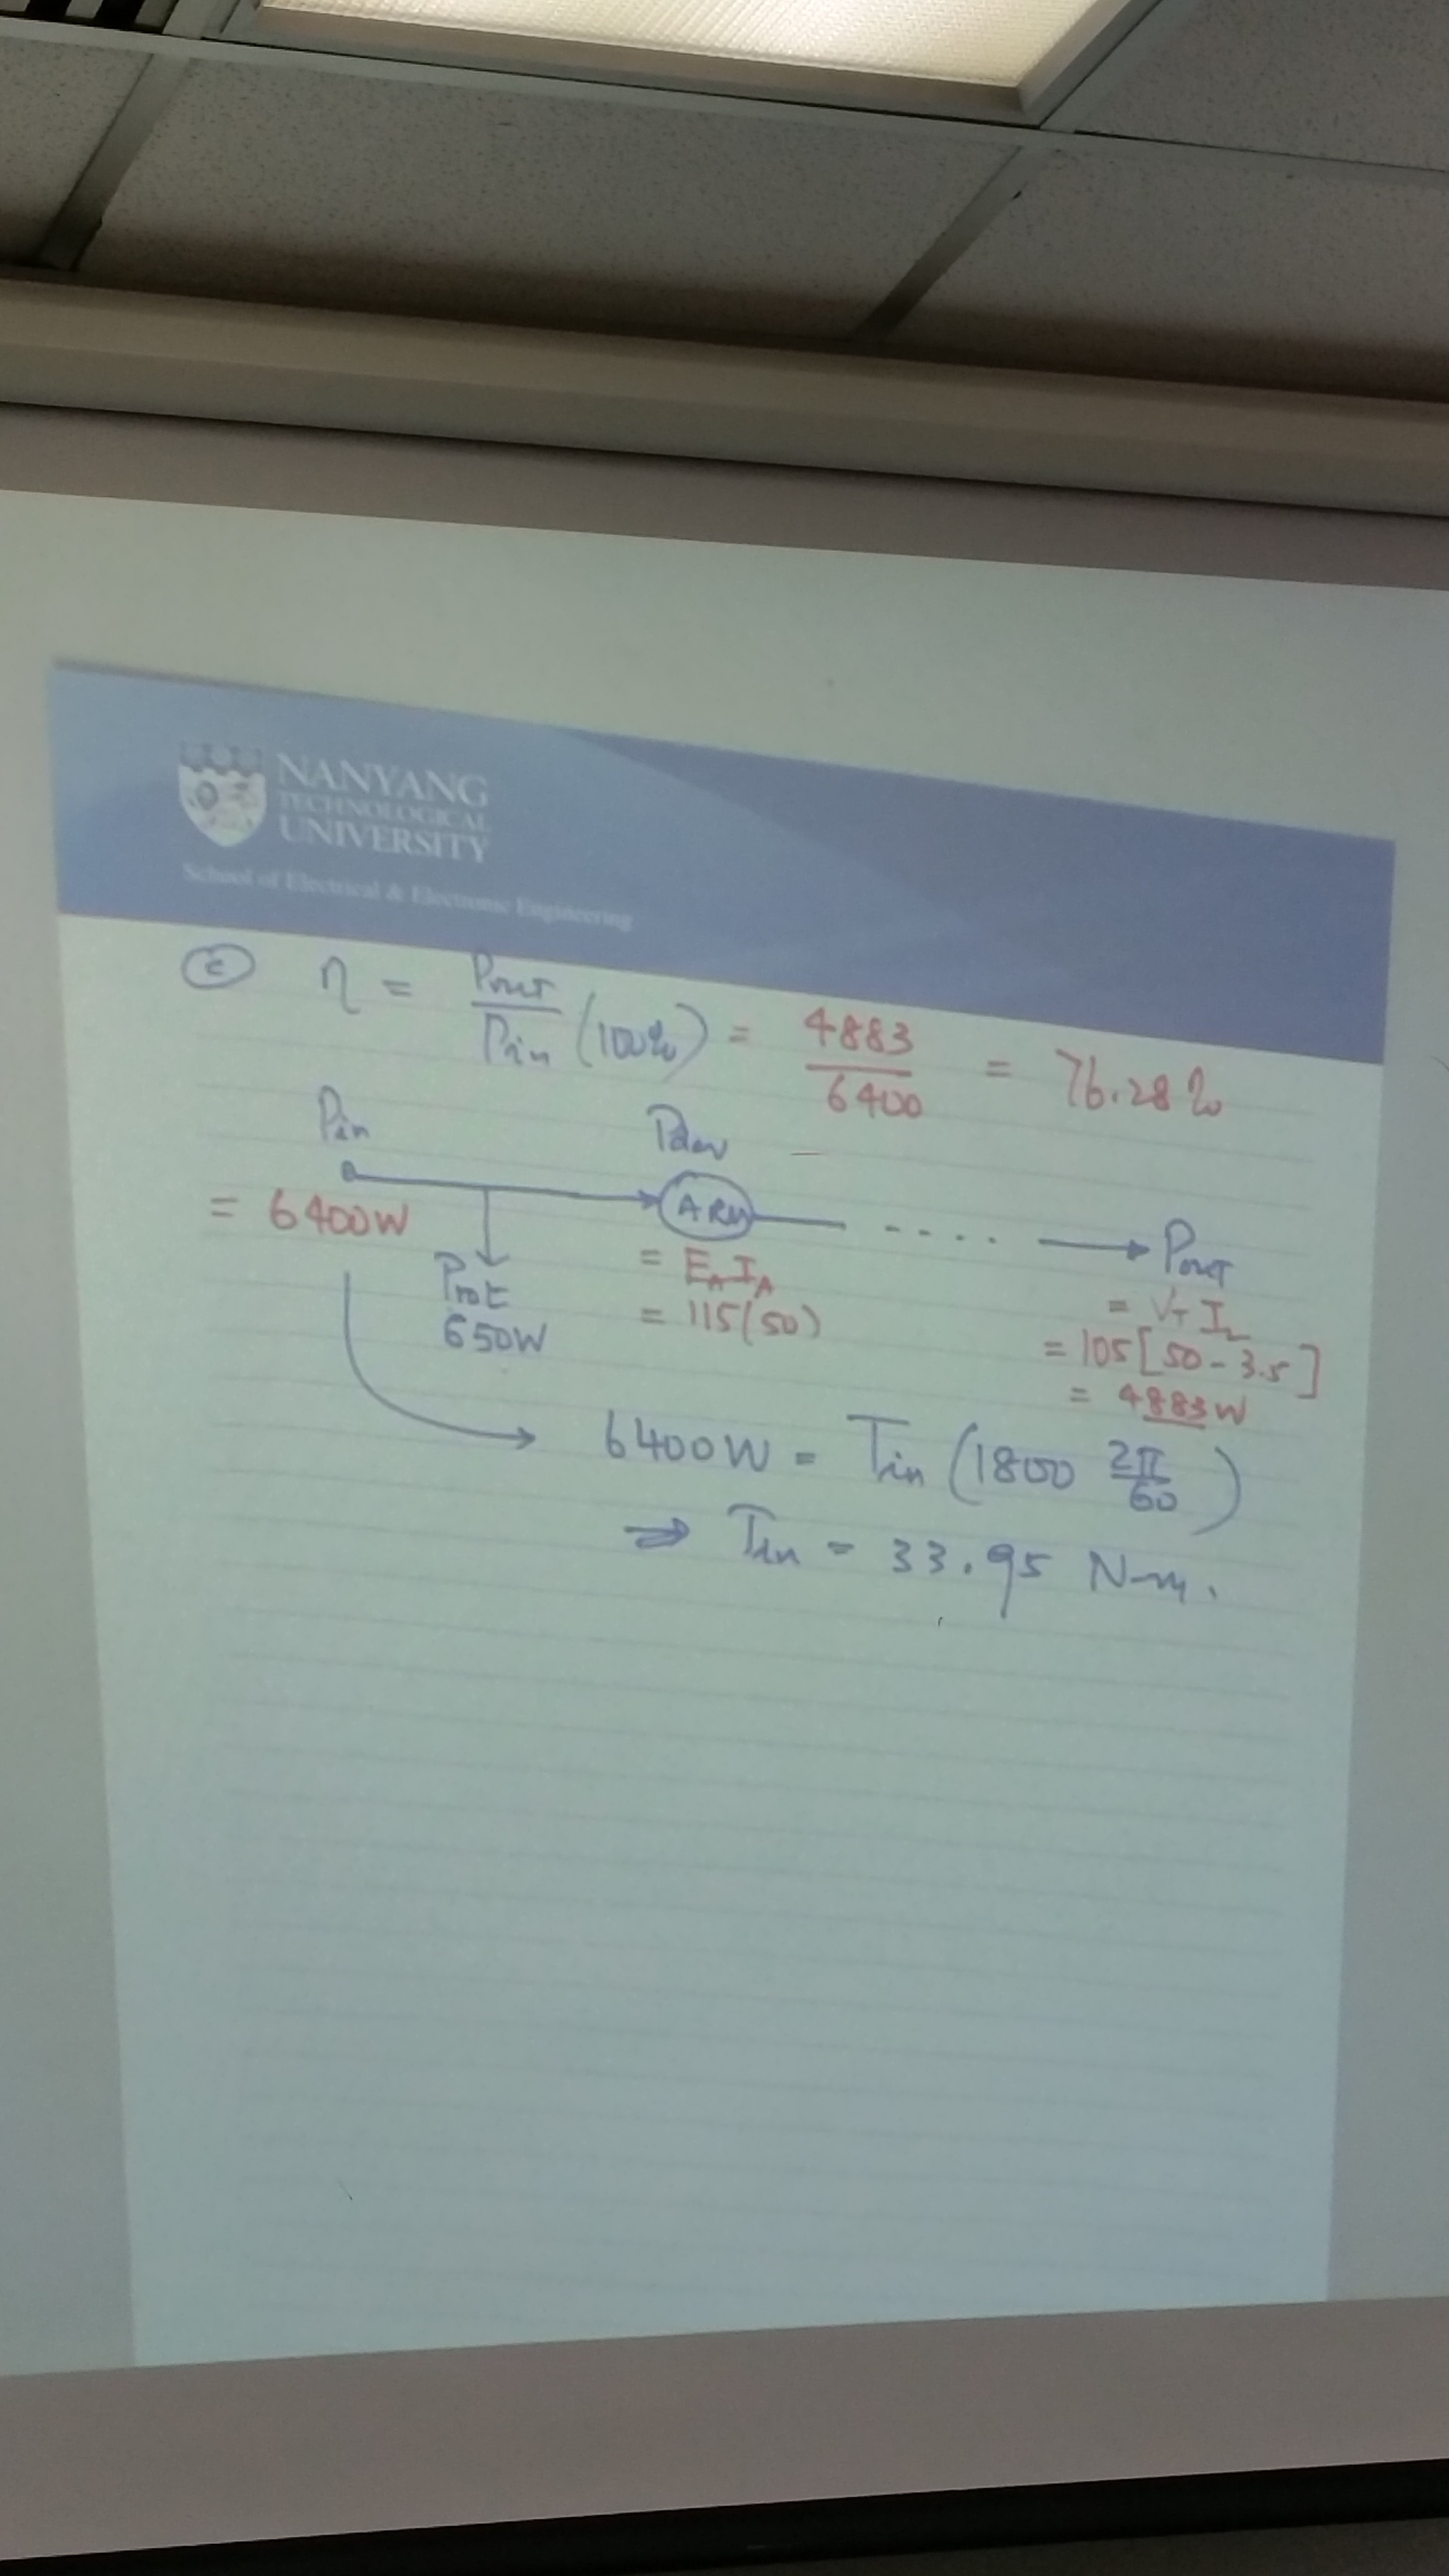 NANYANG
TECHNOLOGICAL
UNIVERSITY
School of Electrical & Electronic Engineering
(c) η = Pout/Pin (100%) = 4883/6400 = 76.28%
Pin
Pdev
= 6400W
ARM
Pout
Prot
650W
= EA IA
= 115(50)
= VT IL
= 105[50-3.5]
= 4883W
6400W = Tin (1800 2π/60)
⇒ Tin = 33.95 N-m.